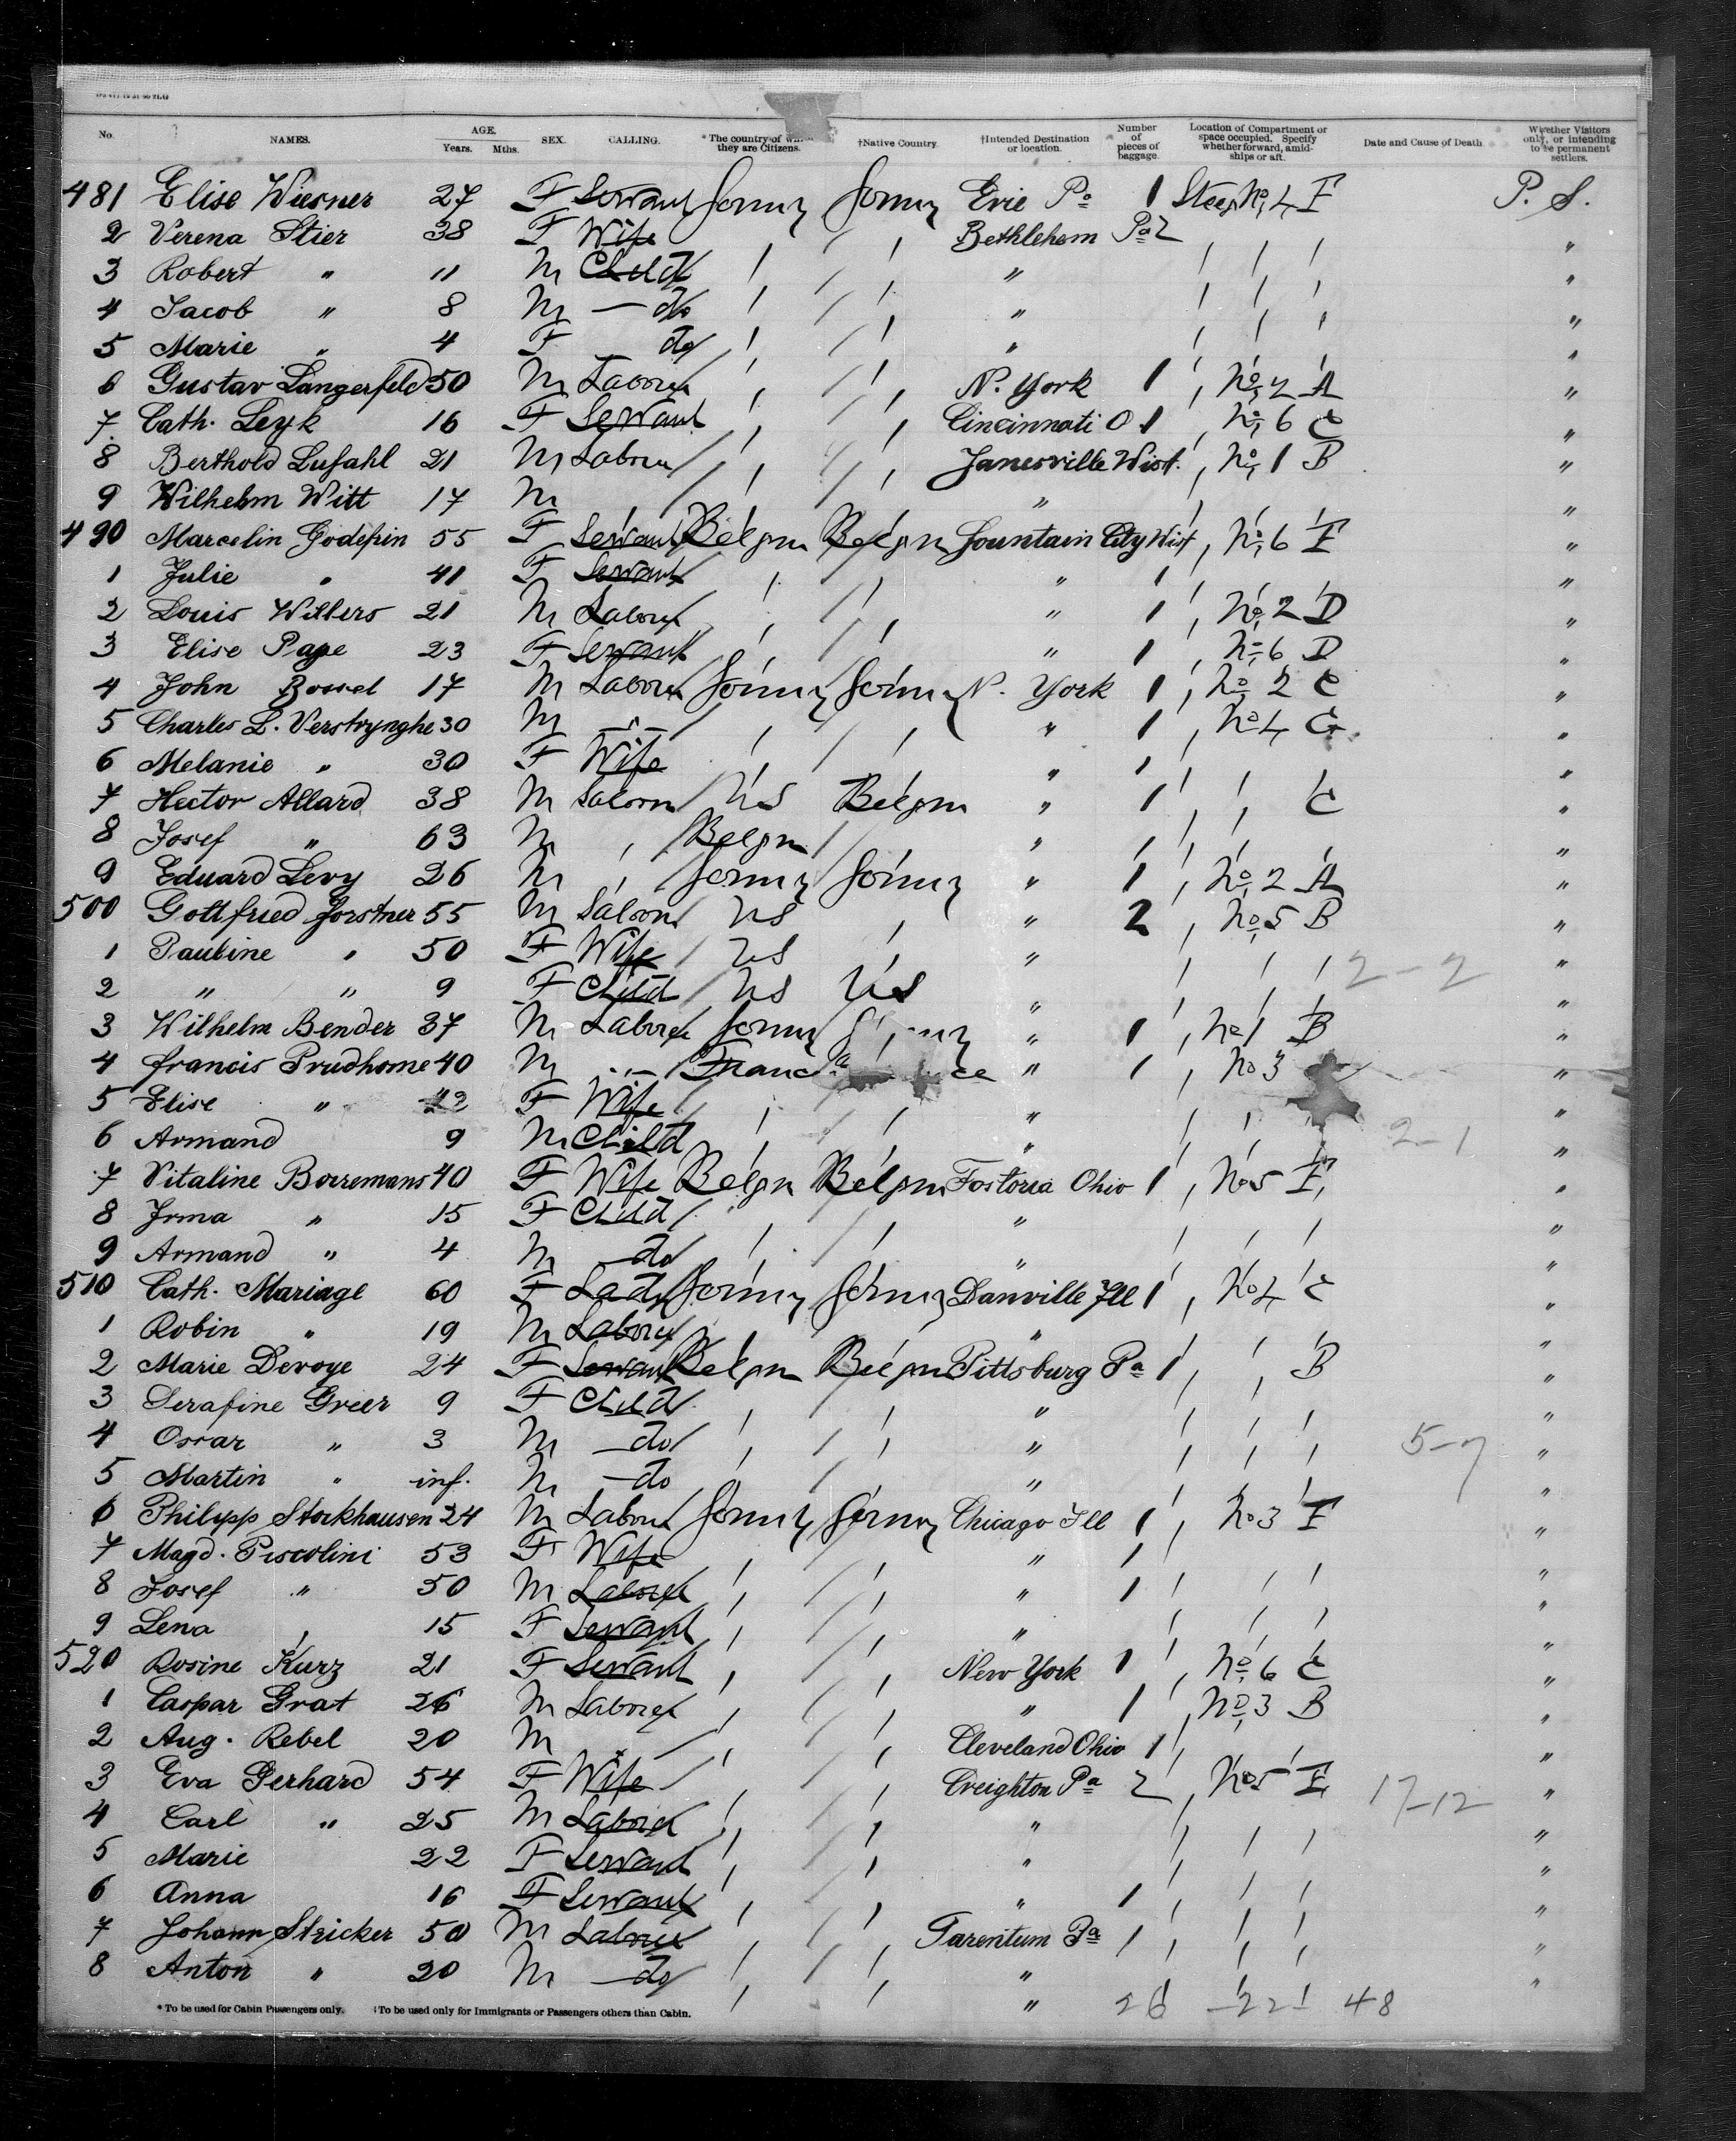 No. NAMES. AGE. Years. Mths. SEX. CALLING. * The country of which they are Citizens. †Native Country. †Intended Destination or location. Number of pieces of baggage. Location of Compartment or space occupied. Specify whether forward, amid-ships or aft. Date and Cause of Death. Whether Visitors only, or intending to be permanent settlers.
481 Elise Wiesner 27 F Servant Germy Germy Erie Pa 1 Steer No 4 E P. S.
2 Verena Stier 38 F Wife / / Bethlehem Pa 2 / / / "
3 Robert " 11 M Child / / " / / / "
4 Jacob " 8 M — do / / " / / / "
5 Marie " 4 F do / / " / / / "
6 Gustav Langerfeld 50 M Laborer / / N. York 1 / No 2 A "
7 Cath. Leyk 16 F Servant / / Cincinnati O 1 / No 6 C "
8 Berthold Lufahl 21 M Laborer / / Janesville Wisc. / No 1 B "
9 Wilhelm Witt 17 M / / " / / / "
490 Marcelin Godefrin 55 F Servant Belgm Belgm Fountain City Wisc / No 6 E "
1 Julie " 41 F Servant / / " 1 / / "
2 Louis Willers 21 M Laborer / / " 1 / No 2 D "
3 Elise Pape 23 F Servant / / " 1 / No 6 D "
4 John Bossel 17 M Laborer Germy Germy N. York 1 / No 2 C "
5 Charles L. Verstrynghe 30 M —"— / / " 1 / No 4 C "
6 Melanie " 30 F Wife / / " 1 / / "
7 Hector Allard 38 M Laborer US Belgm " 1 / / C "
8 Josef " 63 M / Belgm / " / / / "
9 Eduard Levy 26 M / Germy Germy " 1 / No 2 A "
500 Gottfried Forstner 55 M Laborer US / " 2 / No 5 B "
1 Pauline " 50 F Wife US / " / / / 2-2 "
2 " " 9 F Child US US " / / / "
3 Wilhelm Bender 37 M Laborer Germy " 1 / No 1 B "
4 Francis Prudhome 40 M —"— France " 1 / No 3 "
5 Elise " 42 F Wife / / " / / "
6 Armand 9 M Child / / " / / 2-1 "
7 Vitaline Borremans 40 F Wife Belgm Belgm Fostoria Ohio 1 / No 5 E "
8 Irma " 15 F Child / / " / / / "
9 Armand " 4 M — do / / " / / / "
510 Cath. Mariage 60 F Lady Germy Germy Danville Ill 1 / No 4 C "
1 Robin " 19 M Laborer / / " / / / "
2 Marie Devoye 24 F Servant Belgm Belgm Pittsburg Pa 1 / / B "
3 Serafine Greer 9 F Child / / " / / / "
4 Oscar " 3 M — do / / " / / / 5-7 "
5 Martin " inf. M — do / / " / / / "
6 Philipp Stockhausen 24 M Laborer Germy Germy Chicago Ill 1 / No 3 E "
7 Magd. Piscolini 53 F Wife / / " 1 / / / "
8 Josef " 50 M Laborer / / " 1 / / / "
9 Lena " 15 F Servant / / " / / / "
520 Rosine Kurz 21 F Servant / / New York 1 / No 6 C "
1 Caspar Grat 26 M Laborer / / " 1 / No 3 B "
2 Aug. Rebel 20 M " / / Cleveland Ohio 1 / / / "
3 Eva Gerhard 54 F Wife / / Creighton Pa 2 / No 5 E 17-12 "
4 Carl " 25 M Laborer / / " / / / "
5 Marie 22 F Servant / / " / / / "
6 Anna 16 F Servant / / " 1 / / / "
7 Johann Stricker 50 M Laborer / / Tarentum Pa 1 / / / "
8 Anton " 20 M — do / / " / / / "
* To be used for Cabin Passengers only. †To be used only for Immigrants or Passengers others than Cabin. " 26 -22- 48